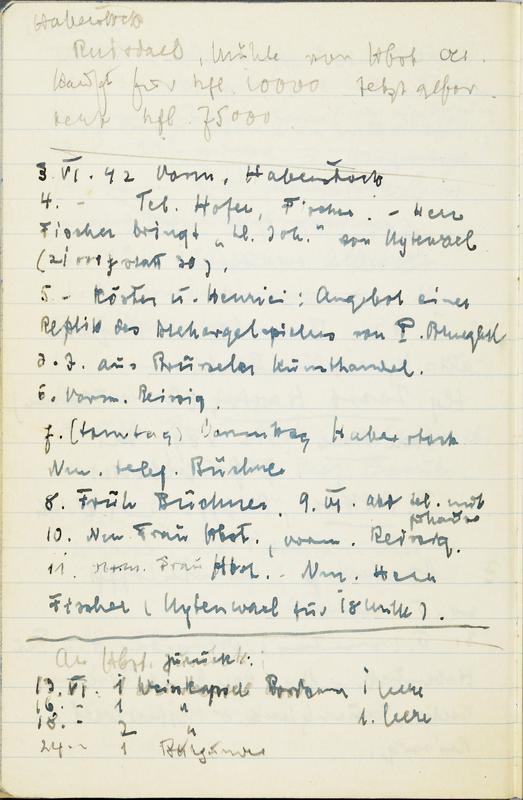 Haberstock
Ruisdael, Mühle von Hbst an
kauft für hfl. 10000 Jetzt gefor
dert hfl 75000.
3. VI. 42 Vorm. Haberstock
4. - Tel. Hofer, Fischer. - Herr
Fischer bringt „Hl. Joh." von Uytewael
(21000 statt 30).
5. - Köster u. Henrici: Angebot einer
Replik des von P. Brueghel
d. J. aus Brüssels Kunsthandel.
6. Vorm. Reissig.
7. (Sonntag) Vormittag Haberstock
Nm. telef. Büchner
8. Früh Büchner. 9. VI. tel. mit
10. Nm. Frau Hbst., vorm. Reissig.
11. vorm. Frau Hbst. - Nm. Herr
Fischer (Uytenwael für 18 Mille).
An Hbst. zurück:
13. VI. 1 Bordeaux 1 leere
16. - 1 "
18. - 2 " 1. leere
24. - 1 Burgunder